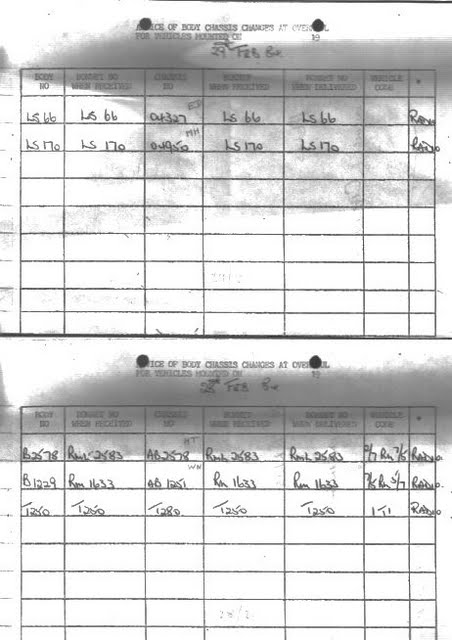 ADVICE OF BODY CHASSIS CHANGES AT OVERHAUL
FOR VEHICLES MOUNTED ON 19
29th FEB 80
BODY NO BONNET NO WHEN RECEIVED CHASSIS NO BONNET NO WHEN DELIVERED VEHICLE CODE *
ED
LS 66 LS 66 04327 LS 66 LS 66 RADIO
MH
LS 170 LS 170 04950 LS 170 LS 170 RADIO
ADVICE OF BODY CHASSIS CHANGES AT OVERHAUL
FOR VEHICLES MOUNTED ON 19
28th FEB
BODY NO BONNET NO WHEN RECEIVED CHASSIS NO BONNET NO WHEN DELIVERED VEHICLE CODE *
HT
B2578 RML 2583 AB2578 RML 2583 RML 2583 RADIO
WN
B1229 RM 1633 AB 1251 RM 1633 RM 1633 RADIO
T250 T250 T280 T250 T250 1T1 RADIO
28/2